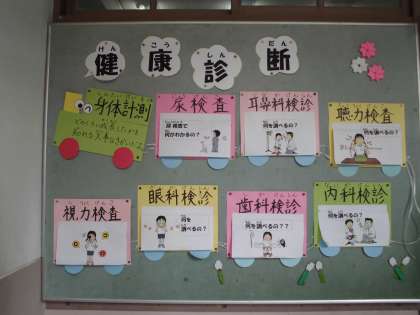 けん こう しん だん
健康診断
身体計測
どのくらい成長したかを
知れる大事な
尿検査
尿検査で
何がわかるの？
耳鼻科検診
何を調べるの？
聴力検査
何を調べるの？
視力検査
眼科検診
何を
調べるの？
歯科検診
何を調べるの？？
内科検診
何を調べるの？